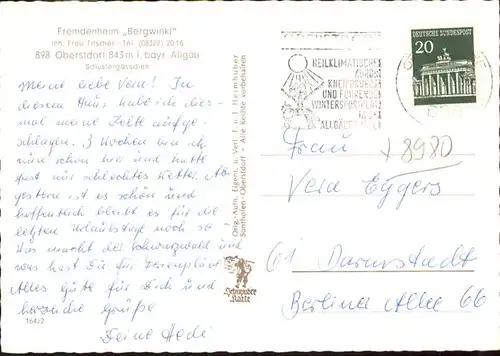 Fremdenheim „Bergwinkl"
Inh. Frau Trischler - Tel. (08322) 2016
898 Oberstdorf 843 m i. bayr. Allgäu
Schustergässele
Meine liebe Vera! In
diesem Haus habe ich dies-
mal meine Zelte aufge-
schlagen. 3 Wochen bin ich
nun schon hier und hatte
fast nur schlechtes Wetter. Ab
gestern ist es schön und
hoffentlich bleibt es für die
letzten Urlaubstage noch so!
Was macht der Schwarzwald und
was hast Du für Ferienpläne
Alles Gute für Dich und
herzliche Grüße
Deine Hedi
164/2
Orig.-Aufn., Eigent. u. Verl. F. u. J. Heimhuber
Sonthofen-Oberstdorf - Alle Rechte vorbehalten
Heimhuber
Karte
HEILKLIMATISCHER
KURORT
KNEIPPKURORT
UND FÜHRENDER
WINTERSPORTPLATZ
ALLGÄU
DEUTSCHE BUNDESPOST
20
Frau
x 8980
Vera Eggers
61 Darmstadt
Berliner Allee 66